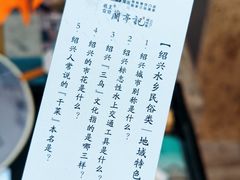 蘭亭記
【绍兴水乡民俗类—地域特色
1 绍兴城市别称是什么？
2 绍兴标志性水上交通工具是什么？
3 绍兴“三乌”文化指的是哪三样？
4 绍兴的市花是什么？
5 绍兴人常说的“干菜”本名是？